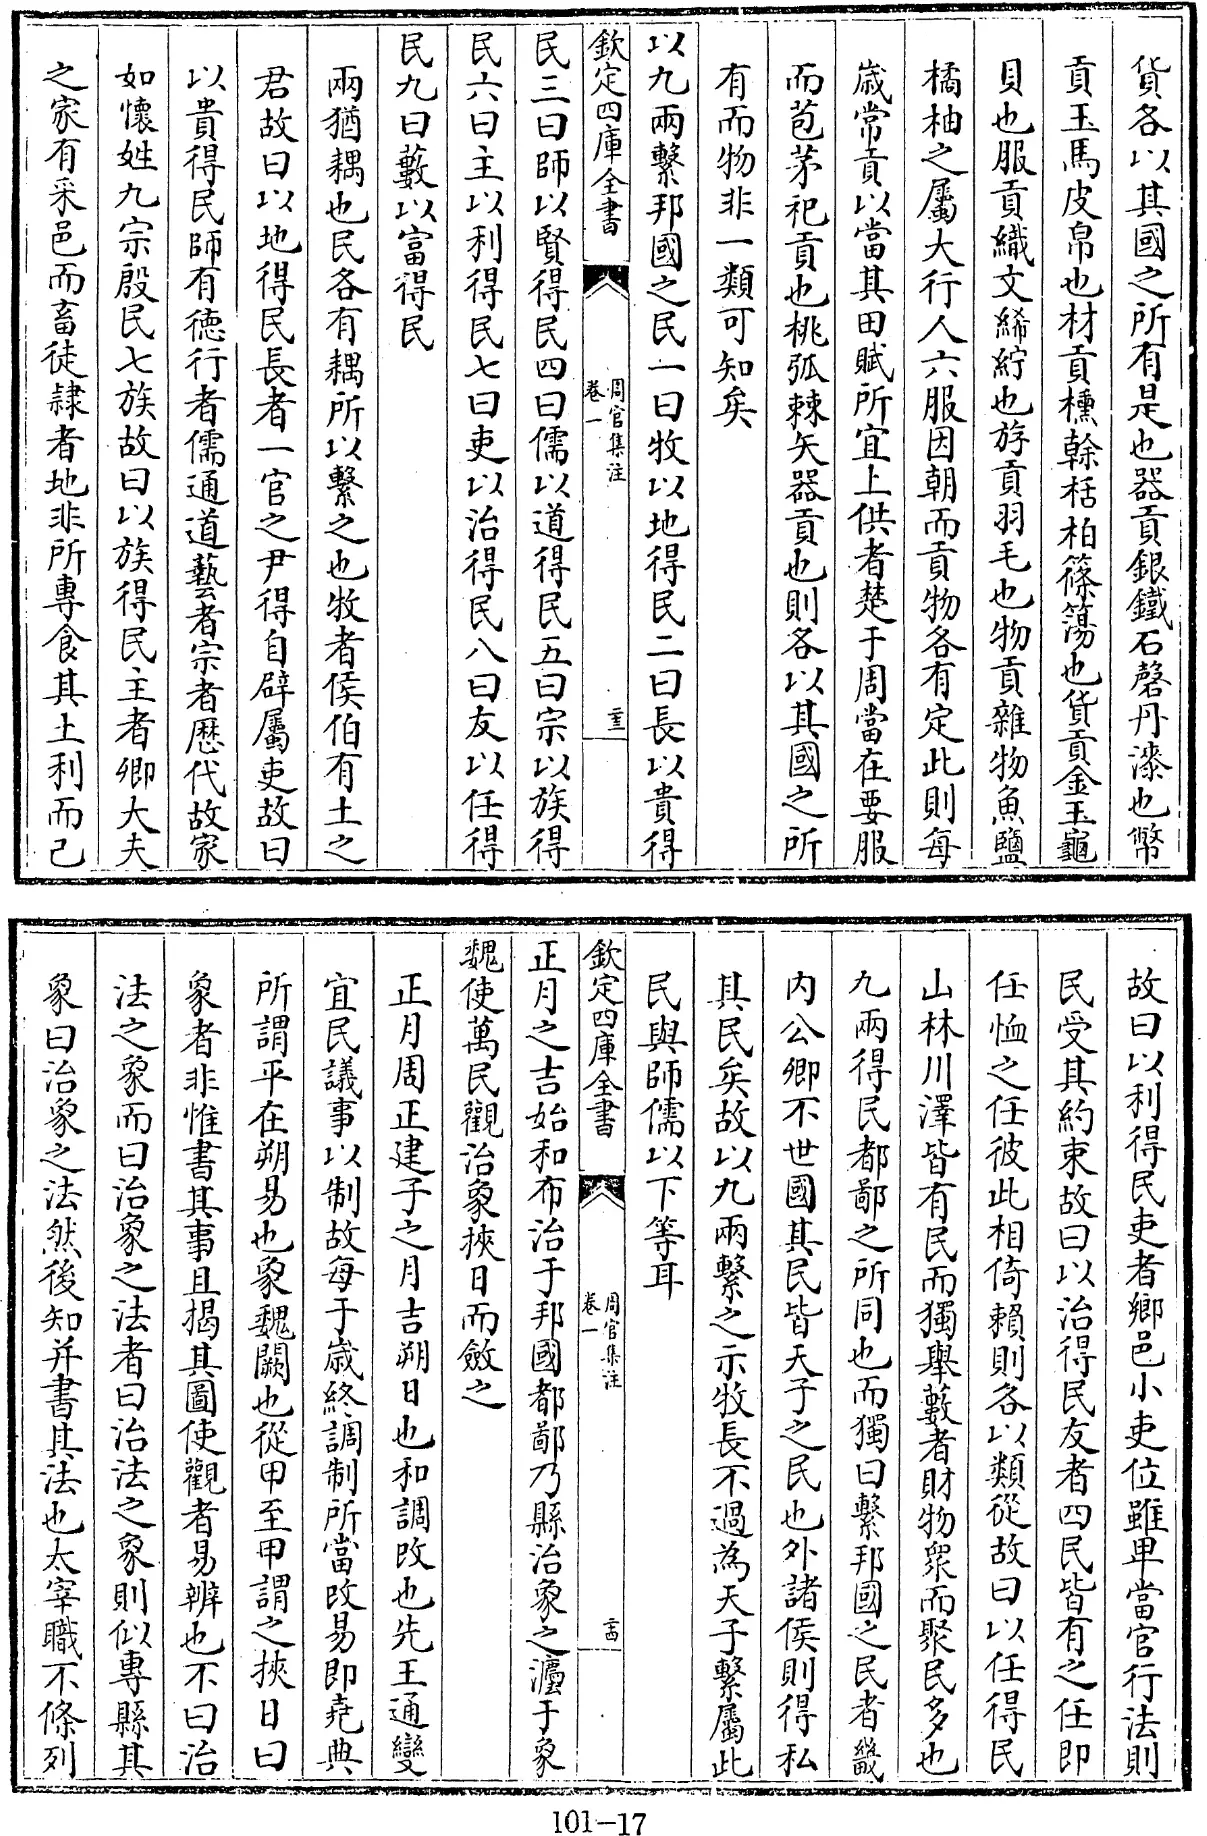 貨各以其國之所有是也器貢銀鐵石磬丹漆也幣
貢玉馬皮帛也材貢櫄榦栝柏篠簜也貨貢金玉龜
貝也服貢織文絺紵也斿貢羽毛也物貢雜物魚鹽
橘柚之屬大行人六服因朝而貢物各有定此則每
歲常貢以當其田賦所宜上供者楚于周當在要服
而苞茅祀貢也桃弧棘矢器貢也則各以其國之所
有而物非一類可知矣
以九兩繫邦國之民一曰牧以地得民二曰長以貴得
欽定四庫全書
周官集注
卷一
二十三
民三曰師以賢得民四曰儒以道得民五曰宗以族得
民六曰主以利得民七曰吏以治得民八曰友以任得
民九曰藪以富得民
兩猶耦也民各有耦所以繫之也牧者侯伯有土之
君故曰以地得民長者一官之尹得自辟屬吏故曰
以貴得民師有德行者儒通道藝者宗者歷代故家
如懷姓九宗殷民七族故曰以族得民主者卿大夫
之家有采邑而畜徒隸者地非所專食其土利而已
故曰以利得民吏者鄉邑小吏位雖卑當官行法則
民受其約束故曰以治得民友者四民皆有之任即
任恤之任彼此相倚賴則各以類從故曰以任得民
山林川澤皆有民而獨舉藪者財物衆而聚民多也
九兩得民都鄙之所同也而獨曰繫邦國之民者畿
内公卿不世國其民皆天子之民也外諸侯則得私
其民矣故以九兩繫之示牧長不過為天子繫屬此
民與師儒以下等耳
欽定四庫全書
周官集注
卷一
二十四
正月之吉始和布治于邦國都鄙乃縣治象之灋于象
魏使萬民觀治象挾日而斂之
正月周正建子之月吉朔日也和調改也先王通變
宜民議事以制故每于歲終調制所當改易即堯典
所謂平在朔易也象魏闕也從甲至甲謂之挾日曰
象者非惟書其事且揭其圖使觀者易辨也不曰治
法之象而曰治象之法者曰治法之象則似專縣其
象曰治象之法然後知并書其法也太宰職不條列
101-17